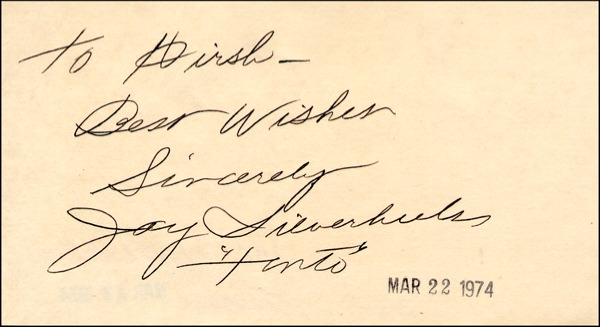 To Hirsh-
Best Wishes
Sincerely
Jay Silverheels
"Tonto"
MAR 22 1974